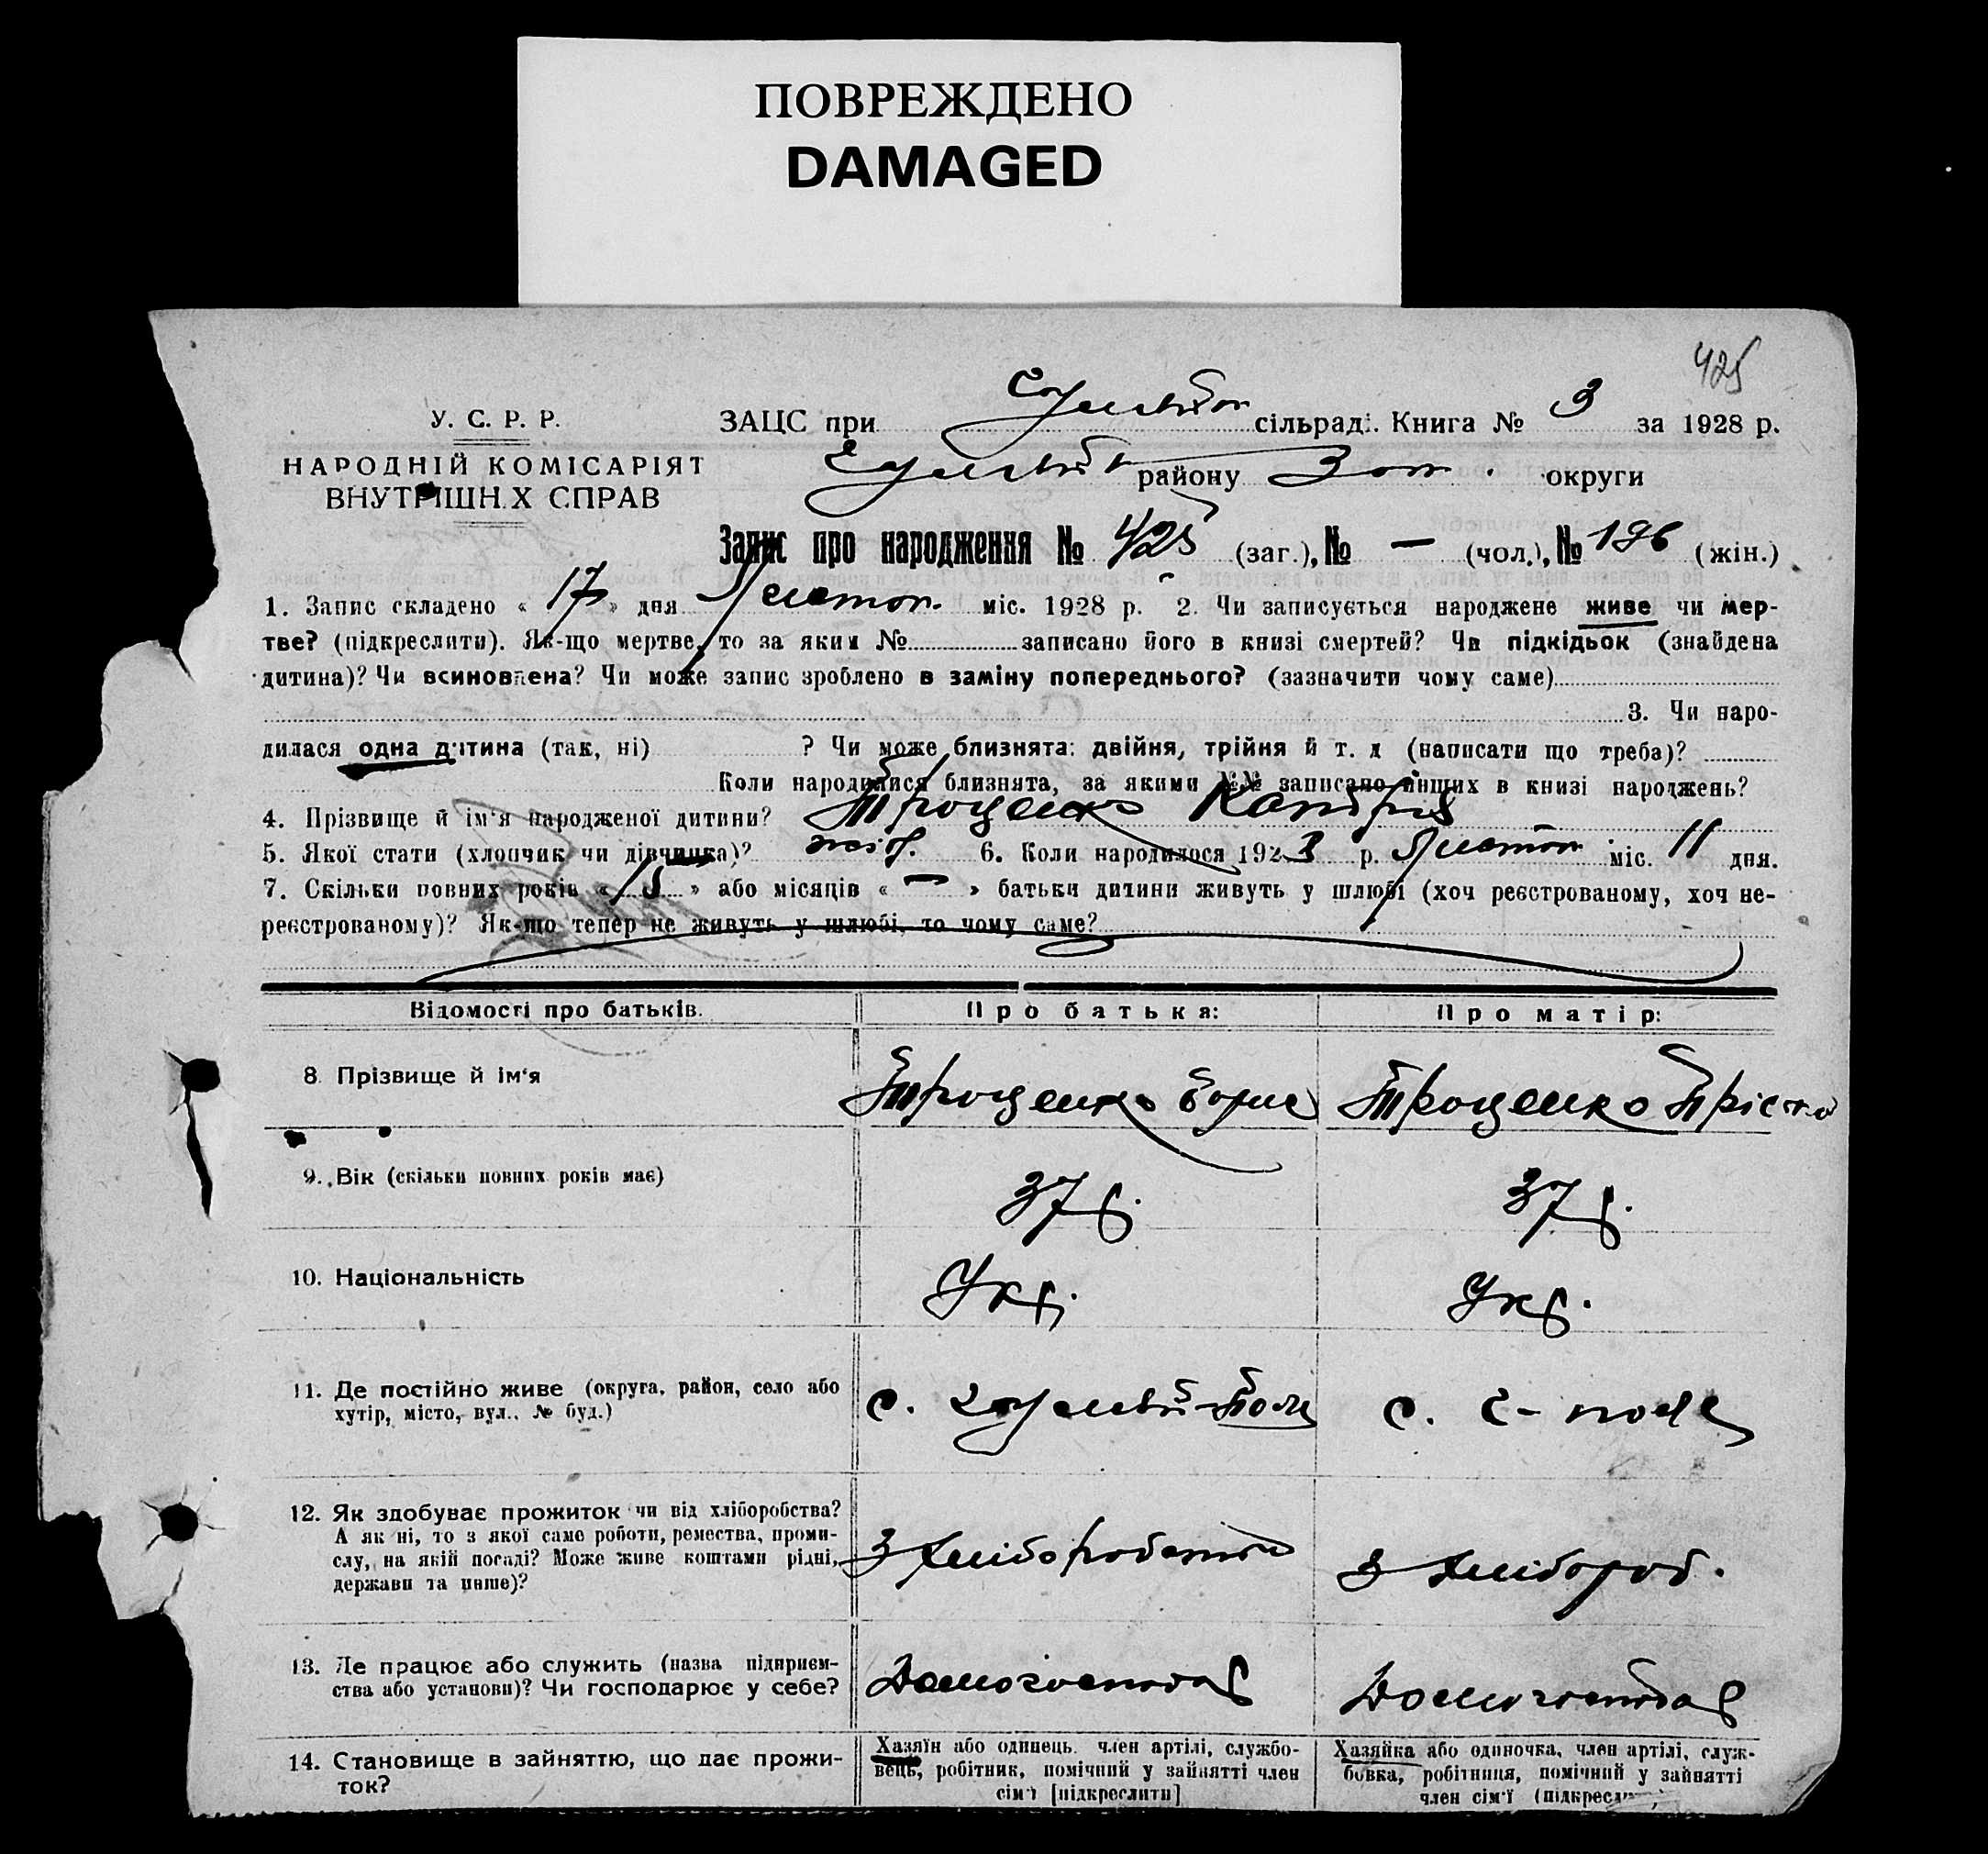 ПОВРЕЖДЕНО
DAMAGED
425
У. С. Р. Р.
НАРОДНІЙ КОМІСАРІЯТ
ВНУТРІШНІХ СПРАВ
ЗАЦС при сільраді. Книга № 3 за 1928 р.
району Зап. округи
Запис про народження № 425 (заг.), № — (чол.), № 196 (жін.)
1. Запис складено « 17 » дня Листоп. міс. 1928 р. 2. Чи записується народжене живе чи мер-
тве? (підкреслити). Як-що мертве, то за яким № записано його в книзі смертей? Чи підкідьок (знайдена
дитина)? Чи всиновлена? Чи може запис зроблено в заміну попереднього? (зазначити чому саме)
3. Чи наро-
дилася одна дитина (так, ні) ? Чи може близнята: двійня, трійня й т. д (написати що треба)?
Коли народилися близнята, за якими №№ записано інших в книзі народжень?
4. Прізвище й ім'я народженої дитини? Троценко
5. Якої стати (хлопчик чи дівчинка)? жіноч. 6. Коли народилося 192 р. Листоп міс. 11 дня.
7. Скільки повних років « 15 » або місяців « — » батьки дитини живуть у шлюбі (хоч реєстрованому, хоч не-
реєстрованому)? Як-що тепер не живуть у шлюбі, то чому саме?
Відомості про батьків. Про батька: Про матір:
8. Прізвище й ім'я Троценко Борис Троценко
9. Вік (скільки повних років має) 37 р. 37 р.
10. Національність Укр. Укр.
11. Де постійно живе (округа, район, село або
хутір, місто, вул., № буд.) с. с. Г- поле
12. Як здобуває прожиток чи від хліборобства?
А як ні, то з якої саме роботи, ремества, проми-
слу, на якій посаді? Може живе коштами рідні,
держави та инше)? З хліборобства З хлібороб.
13. Де працює або служить (назва підприєм-
ства або установи)? Чи господарює у себе? Домогосподар Домогосподар
14. Становище в зайняттю, що дає прожи-
ток?
Хазяїн або одинець, член артілі, службо-
вець, робітник, помічний у зайнятті член
сім'ї [підкреслити]
Хазяйка або одиночка, член артілі, служ-
бовка, робітниця, помічний у зайнятті
член сім'ї